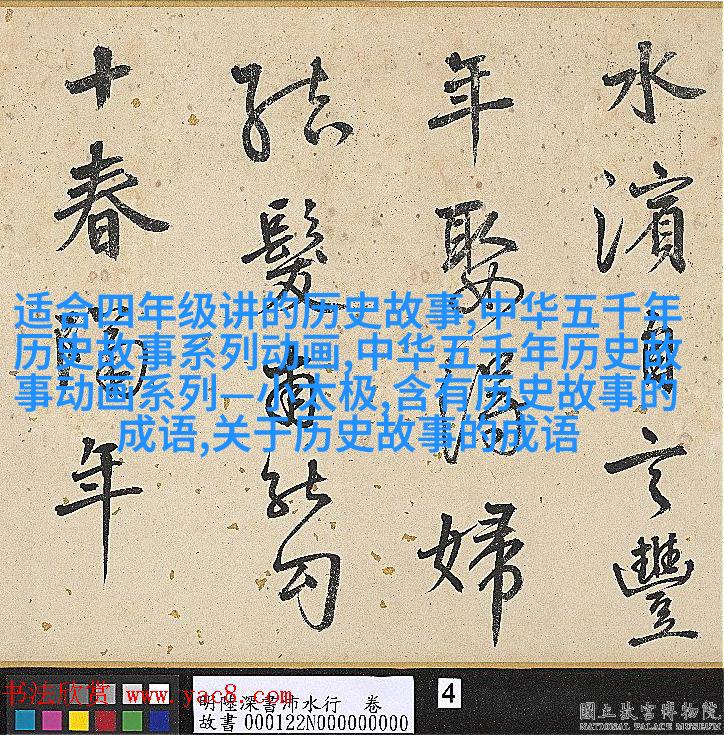 水濱自言豐
年娶得婦
結髮有能勾
十春陽年
适合四年级讲的历史故事,中华五千年
历史故事系列动画,中华五千年历史故
事动画系列—小太极,含有历史故事的
成语,关于历史故事的成语
书法欣赏 www.yac8.com
明陸深書沛水行 卷
故書 000122N000000000
4
國立故宮博物院
NATIONAL PALACE MUSEUM